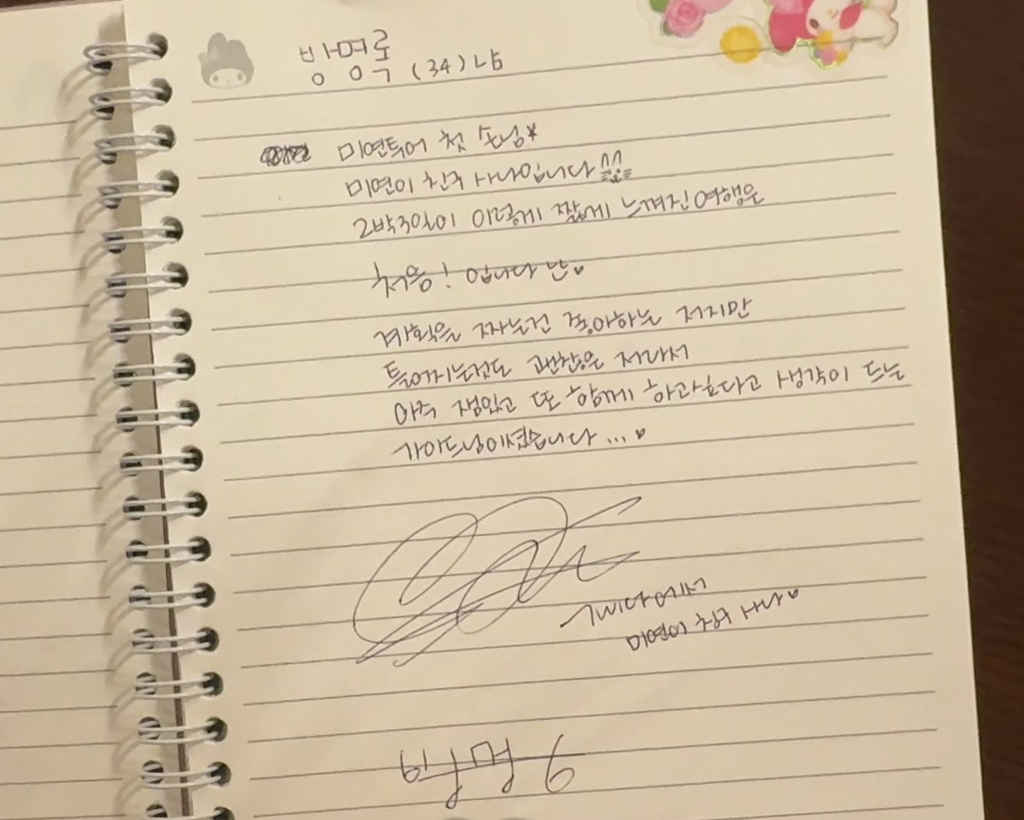 방명록
(34) 남
미연투어 첫 손님*
미연이 친구 사나입니다
2박3일이 이렇게 짧게 느껴진 여행은
처음! 입니다 난♥
계획을 짜는건 좋아하는 저지만
틀어지는것도 괜찮은 저라서
아주 재밌고 또 함께 하고싶다고 생각이 드는
가이드님이셨습니다 ...♥
미연이 친구 사나♥
방명